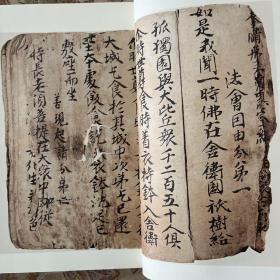 法會因由分第一
如是我聞一時佛在舍衛國祇樹給
孤獨園與大比丘衆千二百五十俱
尒時世尊食時着衣持鉢入舍衛
大城乞食於其城中次第乞已還
至本處飯食訖收衣鉢洗足已
敷座而坐
善現起請分第二
時長老須菩提在大衆中即從